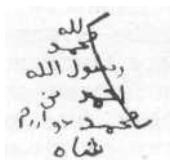 لله
محمد
رسول الله
احمد بن
محمد خوارزم
شاه